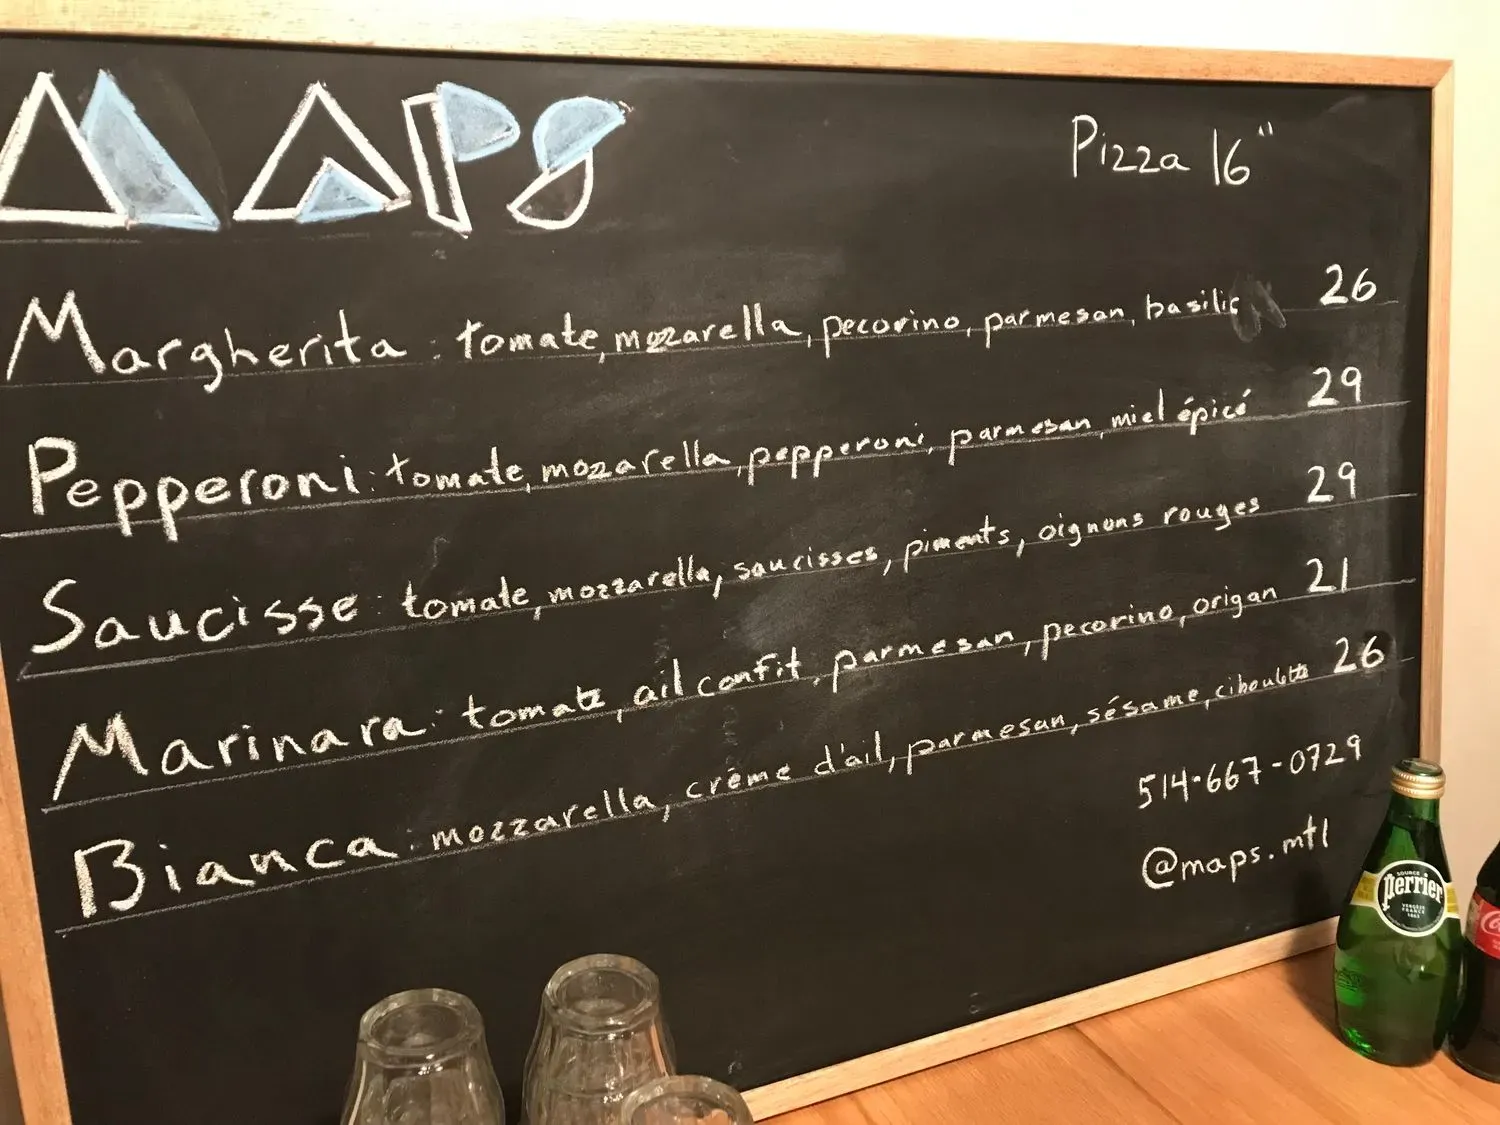 MAPS
Pizza 16"
Margherita : tomate, mozarella, pecorino, parmesan, basilic 26
Pepperoni : tomate, mozarella, pepperoni, parmesan, miel épicé 29
Saucisse : tomate, mozzarella, saucisses, piments, oignons rouges 29
Marinara : tomate, ail confit, parmesan, pecorino, origan 21
Bianca : mozzarella, crème d'ail, parmesan, sésame, ciboulette 26
514-667-0729
@maps.mtl
SOURCE
Perrier
VERGÈZE
FRANCE
1863